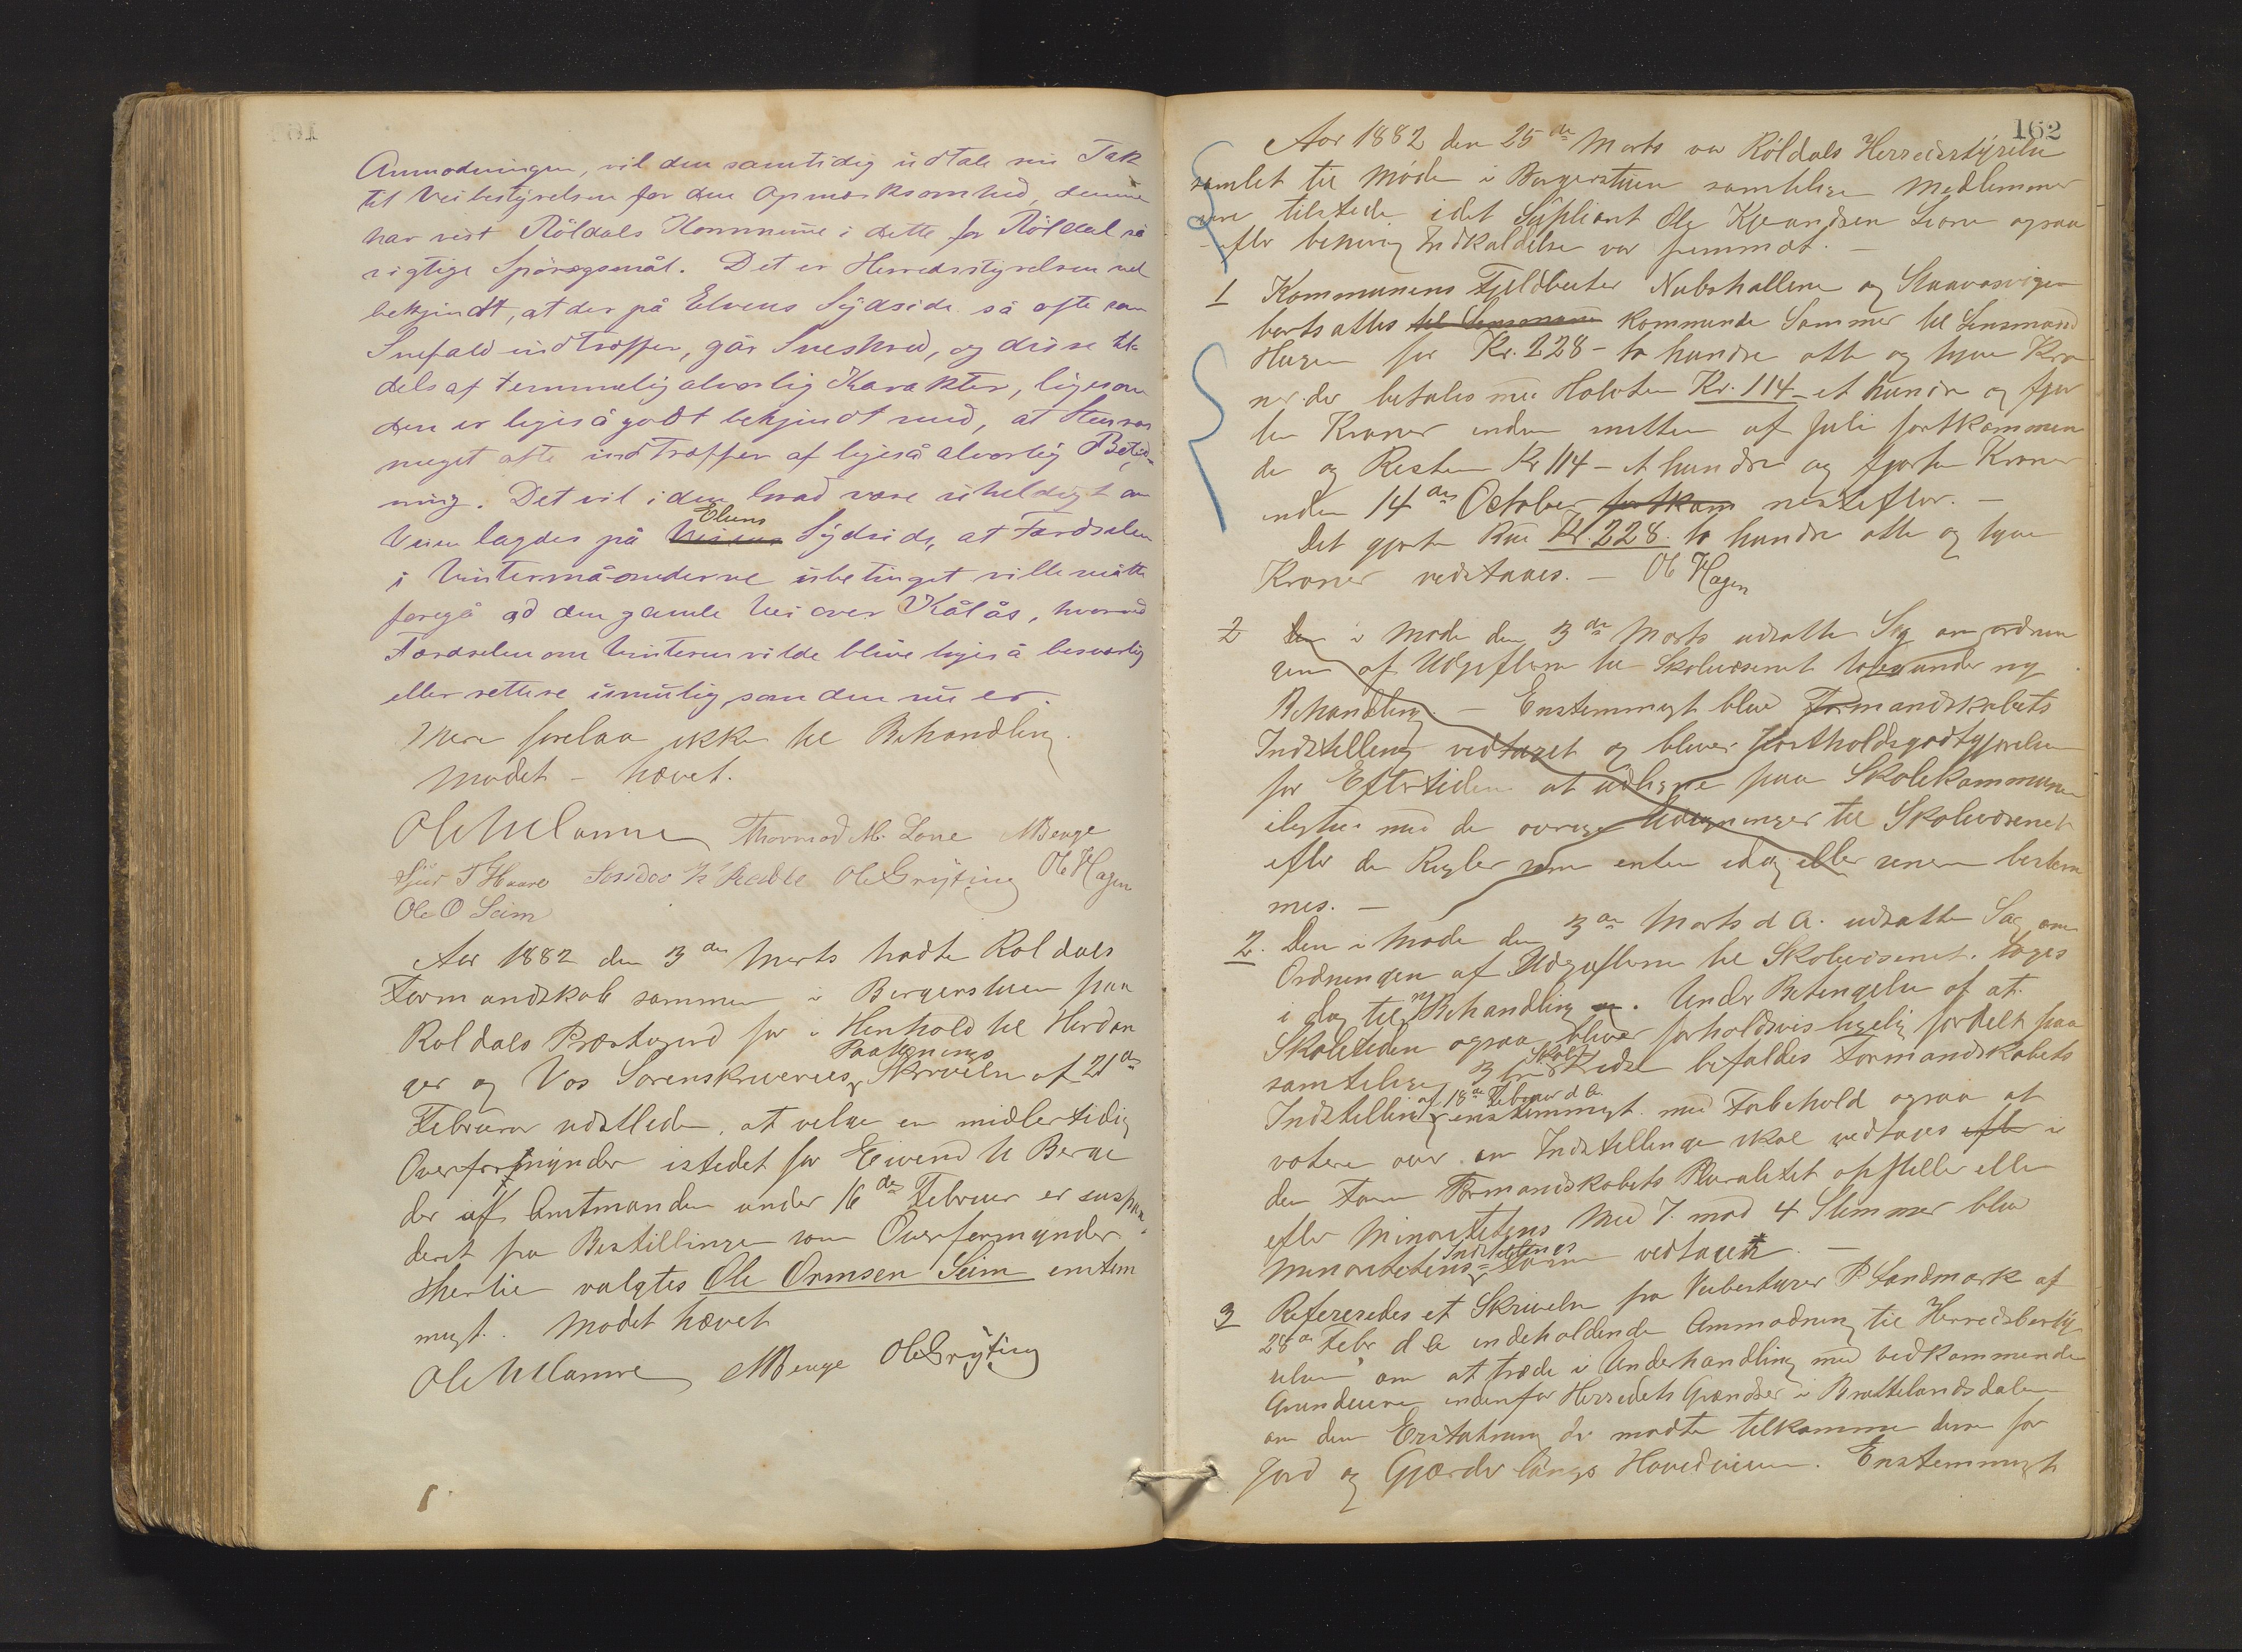 Anmodningen, vil den samtidig udtale sin Tak
til Veibestyrelsen for den Opmærksomhed, denne
har vist Röldals Kommune i dette for Röldal så
vigtige Spörogsmål. Det er Herredsstyrelsen vel
bekjendt, at der på Elvens Sydside så ofte som
Snefald indtræffer, går Sneskred, og disse til
dels af temmelig alvorlig Karakter, ligesom
den er ligeså godt bekjendt med, at
meget ofte indtræffer af ligeså alvorlig Betyd
ning. Det vil i den Grad være uheldigt om
Elvens
Veien lagdes på Sydside, at Færdselen
i Vintermånederne ubetinget ville måtte
foregå ad den gamle Vei over Kålås, hvorved
Færdselen om Vinteren vilde blive ligeså besværlig
eller rettere umulig, som den nu er.
Mere forelaa ikke til Behandling.
Mødet – hævet.
Thormod M. Lone MBenge
Sjur T Haare Ole Gryting Ole Hagen
Ole O Seim
Aar 1882 den 3die Marts traadte Roldals
Formandskab sammen i Borgerstuen paa
Roldals Præstegaard for i Henhold til Hardan
Paategnings
ger og Vos Sorenskriveries Skrivelse af 21de
Februar udstleden, at velge en midlertidig
Overformynder istedet for Eivend H Berge
der af Amtmanden under 16de Februar er suspen
deret fra Bestillingen som Overformynder.
Hertil valgtes Ole Ormsen Seim enstem
migt. Mødet hævet
MBenge Ole Gryting
162
Aar 1882 den 25de Marts var Röldals Herredsstyrelse
samlet til Møde i Borgerstuen samtlige Medlemmer
vare tilstede idet Supliant Ole ogsaa
efter Indkaldelse var fremmødt. –
1 Kommunens Fjeldbeiter Nubshallerne og Staavasvigen
bortsattes kommende Sommer til Lensmand
Hagen for Kr. 228 – to hundre otte og tyve Kro
ner der betales med Halvten Kr. 114 – et hundre og fjor
ten Kroner inden midten af Juli førstkommen
de og Resten Kr 114 – et hundre og fjorten Kroner
inden 14de October næstefter. –
Det gjorte Bud Kr. 228. to hundre otte og tyve
Kroner vedstaaes. – Ole Hagen
2 Den i Møde den 3de Marts udsatte Sag om ordnin
gen af Udgifterne til Skolevæsenet toges under ny
Behandling. – Enstemmigt blev Formandskabets
Indstilling vedtaget og bliver Kostholdsgodtgjørelsen
for Eftertiden at udligne paa Skolekommunen
iligemed de øvrige Udligninger til Skolevæsenet
efter de Regler som enten idag eller senere bestem
mes. –
2. Den i Møde den 3die Marts d A. udsatte Sag om
Ordningen af Udgifterne til Skolevæsenet. toges
i dag til ny Behandling. Under Betingelse af at
Skoletiden ogsaa bliver forholdsvis ligelig fordelt paa
Skole
samtelige 3 Kredse befaldes Formandskabets
af 18de Februar d A.
Indstilling enstemmigt. med Forbehold ogsaa at
votere over om Indstillingen skal vedtages i
den Form Formandskabets Pluralitet opstiller eller
efter Minoritetens Med 7. mod 4 Stemmer blev
Indstillings
Minoritetens Form vedtaget. –
3 Refereredes et Skrivelse fra Veibestyrer P Landmark af
28de Febr d A indeholdende Anmodning til Herredsbesty
relsen om at træde i Underhandling med vedkommende
Grundeiere indenfor Herredets Grændser i Brattelandsdalen
om den Erstatning der maatte tilkomme dem for
Jord og Gjærder langs Hovedveien. Enstemmigt